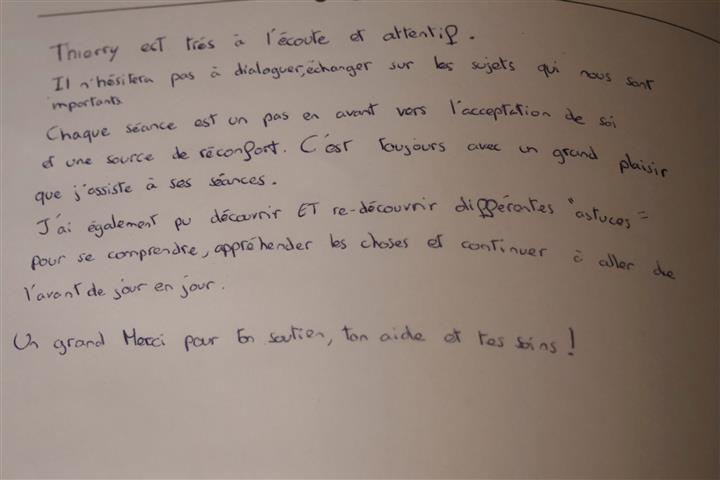 Thierry est très à l'écoute et attentif.
Il n'hésitera pas à dialoguer, échanger sur les sujets qui nous sont
importants.
Chaque séance est un pas en avant vers l'acceptation de soi
et une source de réconfort. C'est toujours avec un grand plaisir
que j'assiste à ses séances.
J'ai également pu découvrir ET re-découvrir différentes "astuces"
pour se comprendre, appréhender les choses et continuer à aller de
l'avant de jour en jour.
Un grand Merci pour ton soutien, ton aide et tes soins !